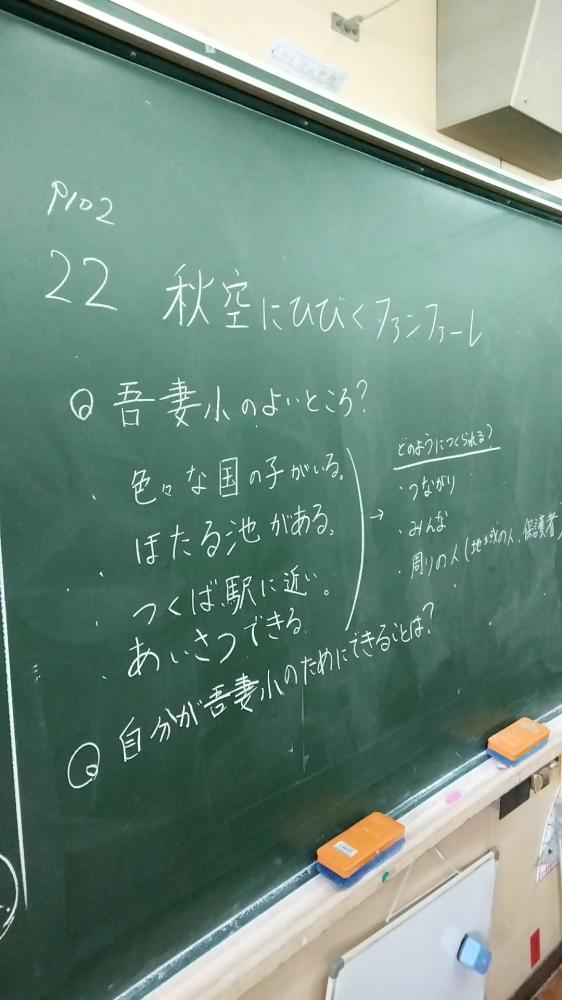 P102
22 秋空にひびくファンファーレ
Q 吾妻小のよいところ?
・色々な国の子がいる。
・ほたる池がある。
・つくば駅に近い。
・あいさつできる。
→
どのようにつくられる?
・つながり
・みんな
・周りの人(地域の人、保護者)
Q 自分が吾妻小のためにできることは?